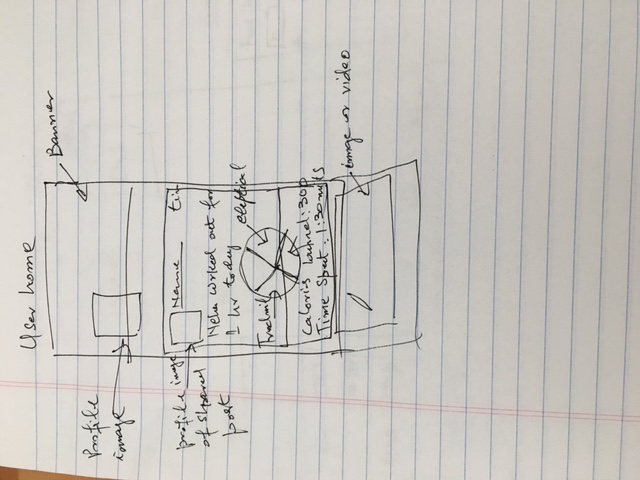 User home
Banner
Profile
image
profile image
of shared
post
Name
tim
Neha worked out for
1 hr today
eleptical
Treadmil
Calories burned: 300
Time Spent: 1:30 mnts
image or video